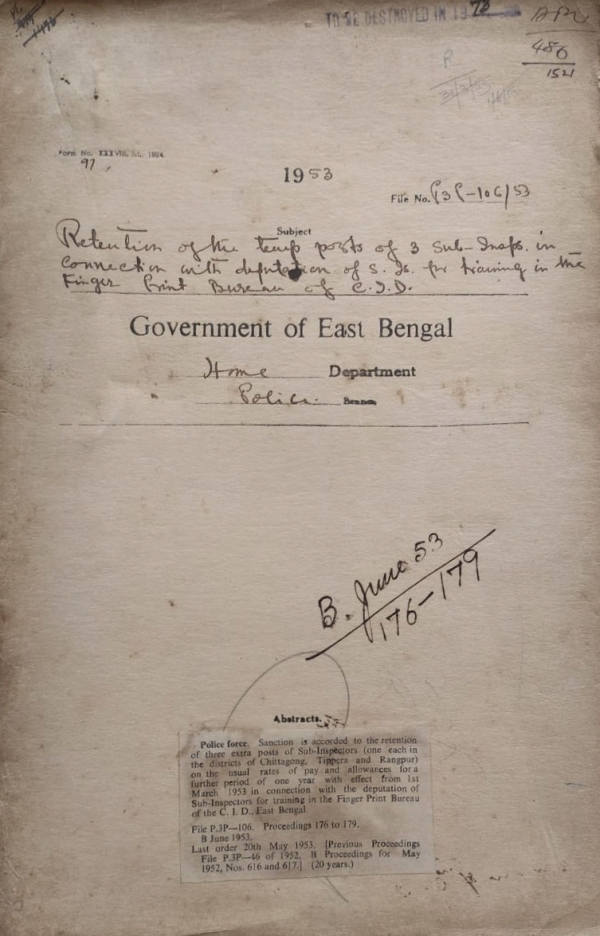 TO BE DESTROYED IN 1973
486
1521
Form No. XXXVIII,
97
1953
File No. P3P-106/53
Subject
Retention of the temp posts of 3 Sub-Insps. in
connection with deputation of S. Is. for training in the
Finger Print Bureau of C.I.D.
Government of East Bengal
Home Department
Police. Branch
B. June 53
176-179
Abstracts.
Police force. Sanction is accorded to the retention
of three extra posts of Sub-Inspectors (one each in
the districts of Chittagong, Tippera and Rangpur)
on the usual rates of pay and allowances for a
further period of one year with effect from 1st
March 1953 in connection with the deputation of
Sub-Inspectors for training in the Finger Print Bureau
of the C. I. D., East Bengal
File P.3P—106. Proceedings 176 to 179.
B June 1953.
Last order 20th May 1953. [Previous Proceedings
File P.3P—46 of 1952, B Proceedings for May
1952, Nos. 616 and 617.] (20 years.)